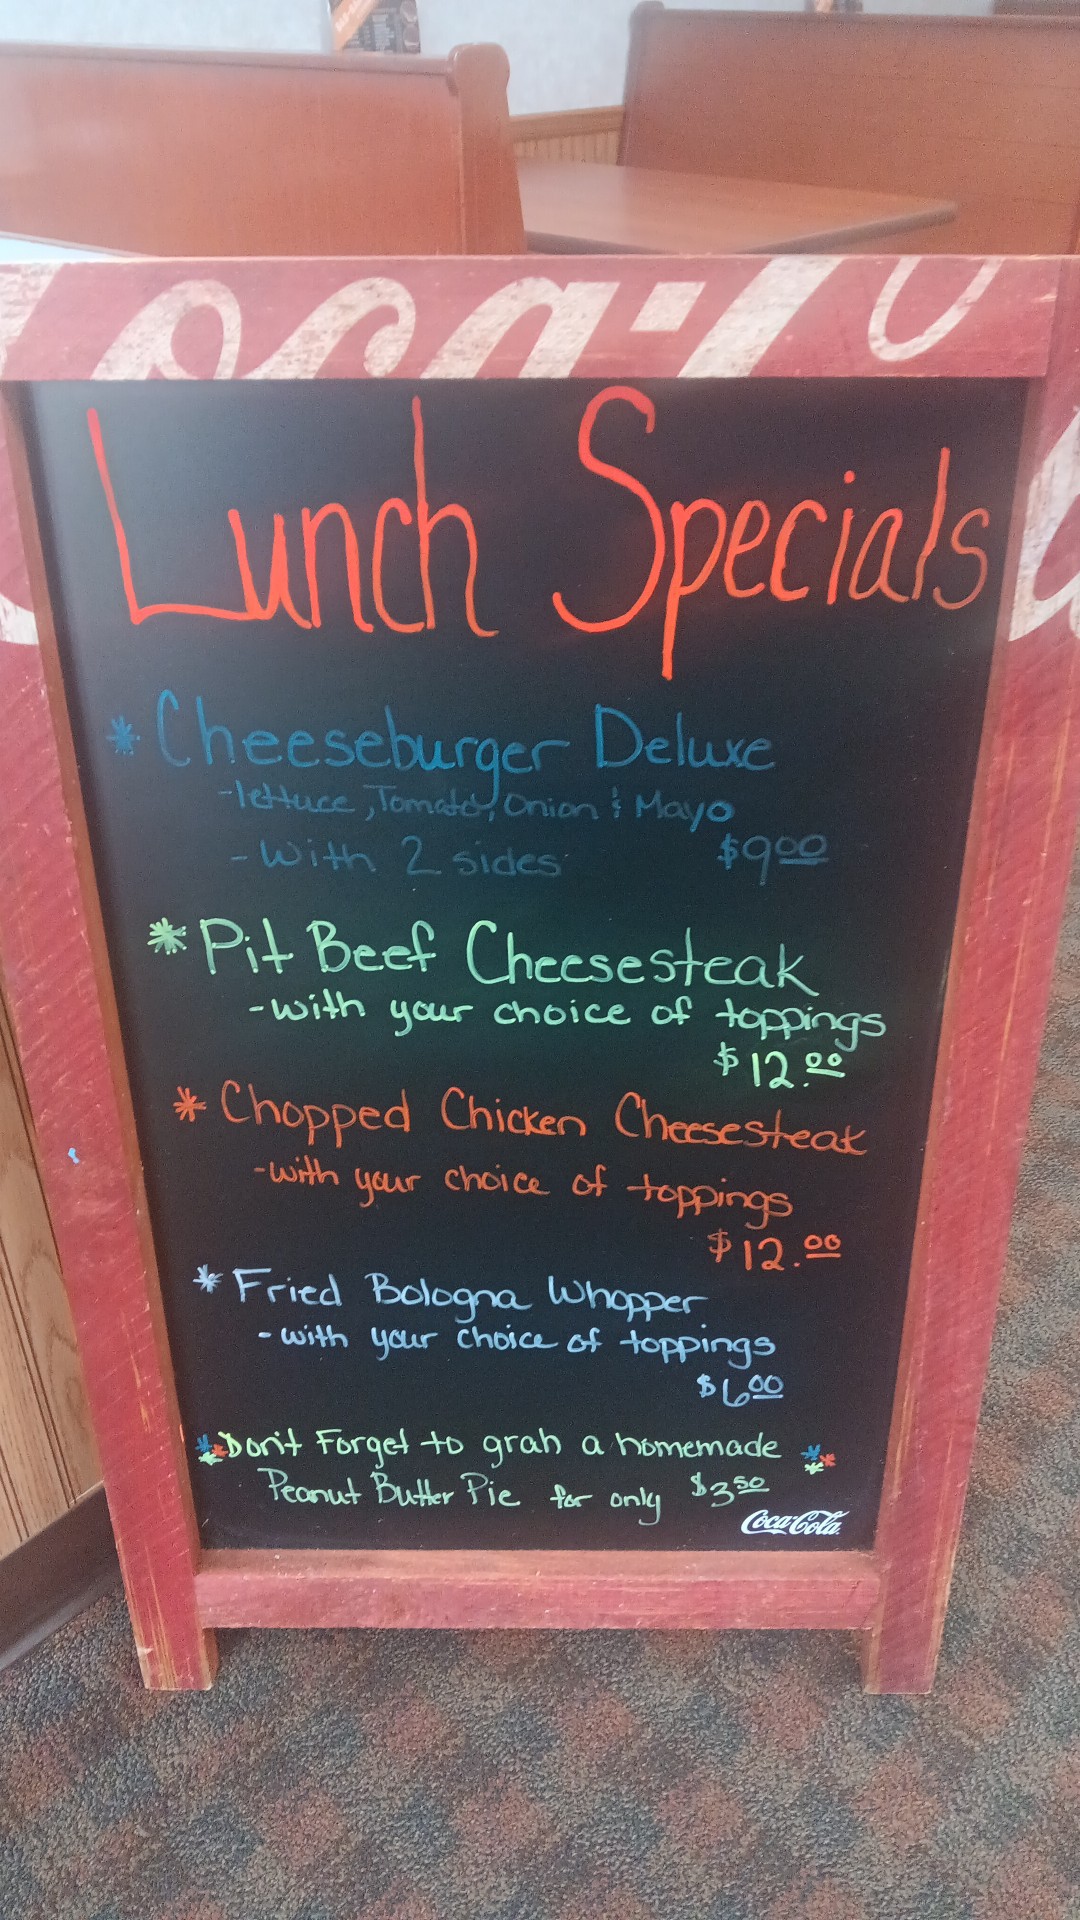 Coca-Co
Lunch Specials
* Cheeseburger Deluxe
-lettuce, Tomato, Onion & Mayo
- With 2 sides $9.00
* Pit Beef Cheesesteak
-with your choice of toppings
$12.00
* Chopped Chicken Cheesesteak
-with your choice of toppings
$12.00
* Fried Bologna Whopper
-with your choice of toppings
$6.00
Don't Forget to grab a homemade
Peanut Butter Pie for only $3.50
Coca-Cola